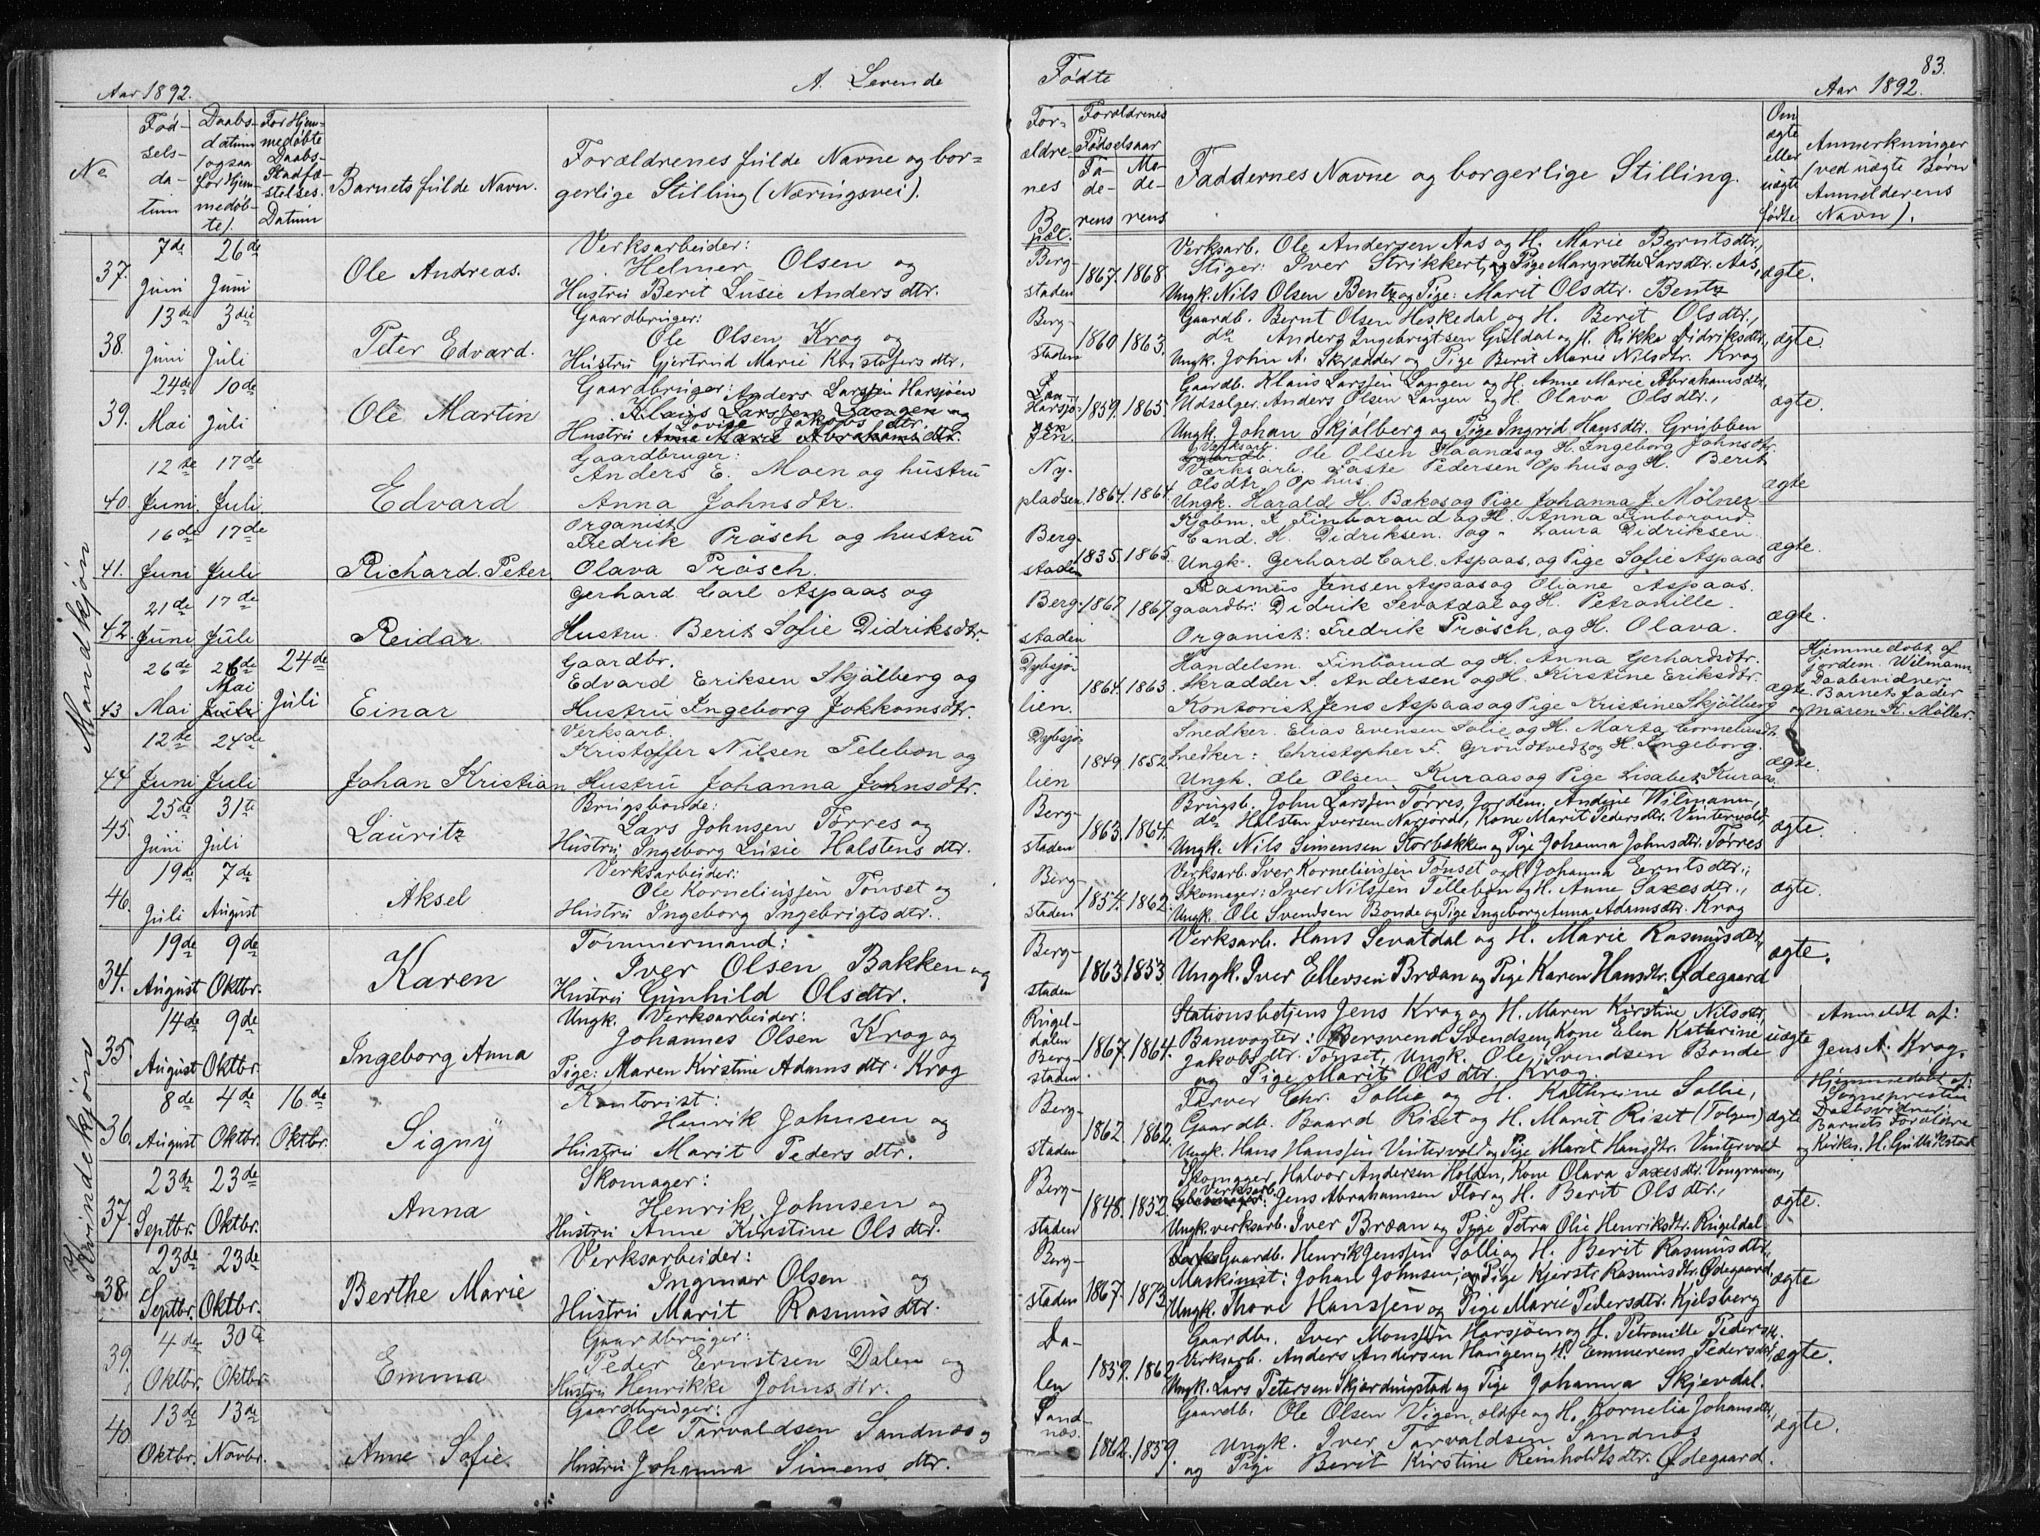 83.
Aar 1892.
A. Levende
Fødte
Aar 1892.
No
Fød-
sels-
da-
tum
Daabs-
datum
(ogsaa
for Hjem-
medøb-
te).
For Hjem-
medøbte
Daabs-
Stadfæ-
stelses-
Datum
Barnets fulde Navn.
Forældrenes fulde Navne og bor-
gerlige Stilling (Næringsvei).
For-
ældre-
nes
Bo-
pæl.
Forældrenes
Fødselsaar
Fa-
de-
rens
Mo-
de-
rens
Faddernes Navne og borgerlige Stilling.
Om
ægte
eller
uægte
fødte
Anmerkninger
(ved uægte Børn
Anmelderens
Navn).
Mandkjøn
37. 7de Juni 26de Juni
Ole Andreas.
Verksarbeider:
Helmer Olsen og
Hustru Berit Lusie Andersdtr.
Berg-
staden
1867. 1868.
Verksarb. Ole Andersen Aas og H. Marie Berntsdtr,
Stiger: Iver Strikkert, og Pige Margrethe Larsdtr. Aas,
Ungk. Nils Olsen Bentz og Pige: Marit Olsdtr. Bentz
ægte.
38. 13de Juni 3die Juli
Peter Edvard.
Gaardbruger:
Ole Olsen Krog og
Hustru Gjertrud Marie Kristofersdtr.
Berg-
staden
1860. 1863.
Gaardb. Bernt Olsen Heskedal og H. Berit Olsdtr.,
do Anders Ingebrigtsen Guldal og H. Rikka Didriksdtr,
Ungk. John A. Skrædder og Pige Berit Marie Nilsdtr. Krog
ægte.
39. 24de Mai 10de Juli
Ole Martin
Gaardbruger: Anders Larssen Harsjøen
Klaus Larssen Langen og
Lovise Jakobsdtr.
Hustru Anna Marie Abrahamsdtr.
Harsjø-
en
1859. 1865.
Gaardb. Klaus Larssen Langen og H. Anne Marie Abrahamsdtr.,
Udsalger. Anders Olsen Langen og H. Olava Olsdtr.,
Ungk. Johan Skjølberg og Pige Ingrid Hansdtr. Grubben
ægte.
40. 12te Juni. 17de Juli.
Edvard
Gaardbruger:
Anders E. Moen og hustru
Anna Johnsdtr.
Ny-
pladsen
1864. 1864.
Verksarb.
Ole Olsen Haanæs og H. Ingeborg Johnsdtr.
Værksarb. Taste Pedersen Ophus og H. Berit
Olsdtr. Ophus.
Ungk. Harald H. Bækos og Pige Johanna J. Mölner
ægte
41. 16de Juni 17de Juli
Richard Peter
Organist
Fredrik Prösch og hustru
Olava Prösch.
Berg-
staden
1835. 1865.
Kjøbm. I. Finborud og H. Anna Finborud.
Cand. H. Didriksen. og Laura Didriksen
Ungk. Gerhard Carl. Aspaas, og Pige Sofie Aspaas
ægte.
42. 21de Juni 17de Juli
Reidar
Gerhard Carl Aspaas og
Hustru. Berit Sofie Didriksdtr.
Berg-
staden
1867. 1867.
Rasmus Jensen Aspaas og Oliane Aspaas.
gaardbr: Didrik Sevatdal og H. Petronille.
Organist: Fredrik Prösch, og H. Olava.
ægte.
43 26de Mai 26de Mai Juli 24de Juli
Einar
Gaardbr.
Edvard Eriksen Skjølberg og
Hustru Ingeborg Jokkomsdtr.
Dybsjø-
lien.
1864. 1863.
Handelsm. Finborud og H. Anna Gerhardsdtr.
Skrædder I. Andersen og H. Kirstine Eriksdtr.
Kontorist Jens Aspaas og Pige Kristine Skjølberg
ægte.
Hjemmedøbt af
Jordem. Wilmann
Daabsvidner
Barnets fader
og Maren K. Möller.
44 12te Juni 24de Juli
Johan Kristian
Verksarb.
Kristoffer Nilsen Telebon og
Hustru Johanna Johnsdtr.
Dybsjø-
lien
1849. 1852.
Snedker. Elias Evensen Solie og H. Marta Corneliusdt.
Snedker: Christopher F. Gröndtvedt og H. Ingeborg.
Ungk. Ole Olsen Kuraas og Pige Lisabet Kuraas.
ægte.
45. 25de Juni 31te Juli
Lauritz
Brugsbonde:
Lars Johnsen Torres og
Hustru Ingeborg Lusie Halstensdtr.
Berg-
staden
1863. 1864.
Brugsb. John Larssen Torres, Jordem. Andine Wilmann,
do Halsten Iversen Narjordt, Kone Marit Pedersdtr. Vintervold
Ungk. Nils Simensen Storbækken og Pige Johanna Johnsdtr. Torres
ægte.
46. 19de Juli 7de August
Aksel
Verksarbeider:
Ole Korneliussen Tønset og
Hustru Ingeborg Ingebrigtsdtr.
Berg-
staden
1854. 1862.
Verksarb. Iver Korneliussen Tønset og H. Johanna Erntsdtr.;
Skomager: Iver Nilssen Tellebon og H. Anne Saxesdtr.,
Ungk. Ole Svendsen Bonde og Pige Ingeborg Anna Adamsdtr. Krog
ægte.
Kvindekjøn
34. 19de August 9de Oktbr.
Karen
Tømmermand:
Iver Olsen Bakken og
Hustru Gunhild Olsdtr.
Berg-
staden
1863 1853
Verksarb. Hans Sevatdal og H. Marie Rasmusdtr.,
Ungk. Iver Ellevsen Bræan og Pige Karen Hansdtr. Ødegaard
ægte.
35. 14de August 9de Oktbr.
Ingeborg Anna
Ungk. Verksarbeider:
Johannes Olsen Krog og
Pige: Maren Kirstine Adamsdtr. Krog
Rugel-
dalen
Berg-
staden
1867. 1864.
Stationsbetjens Jens Krog og H. Maren Kirstine Nilsdtr,
Banevogter: Bersvend Svendsen, Kone Elen Kathrine
Jakobsdtr. Tønset, Ungk. Ole Svendsen Bonde
og Pige Marit Olsdtr. Krog.
uægte
Anmeldt af:
Jens A. Krog.
36. 8de August 4de Oktbr. 16.de Oktbr.
Signy
Kontorist:
Henrik Johnsen og
Hustru Marit Pedersdtr.
Berg-
staden
1862. 1862.
Farver Chr. Sollie og H. Kathrine Sollie,
Gaardb. Baard Riset og H. Marit Riset (Tolgen)
Ungk. Hans Hanssen Vintervold og Pige Marit Hansdtr. Vintervold
ægte
Hjemmedøbt af:
Sognepresten
Daabsvidner:
Barnets Forældre
og Kirkes. H. Gullikstad
37. 23de Septbr. 23de Oktbr.
Anna
Skomager:
Henrik Johnsen og
Hustru Anne Kirstine Olsdtr.
Berg-
staden
1848. 1852.
Skomager Halvor Andersen Holden, Kone Olava Saxesdtr. Vongraven,
Verksarb. Jens Abrahamsen Flor og H. Berit Olsdtr.,
Ungk. verksarb. Iver Bræan og Pige Petra Olie Henriksdtr. Rugeldal
ægte.
38. 23de Septbr. 23de Oktbr.
Berthe Marie
Verksarbeider:
Ingmar Olsen og
Hustru Marit Rasmusdtr.
Berg-
staden
1867. 1873.
Gaardb. Henrik Jenssen Solli og H. Berit Rasmusdtr.,
Maskinist: Johan Johnsen, og Pige Kjersti Rasmusdtr. Ødegaard,
Ungk. Thore Hanssen og Pige Marie Pedersdtr. Kjelsberg
ægte
39. 4de Oktbr. 30te Oktbr.
Emma
Gaardbruger:
Peder Ernstsen Dalen og
Hustru Henrikke Johnsdtr.
Da-
len
1837. 1862
Gaardb. Iver Monssen Harsjøen og H. Petronille Pedersdt.
Verksarb. Anders Andersen Haugen og H. Emmerens Pedersdtr,
Ungk. Lars Petersen Skjørdingstad og Pige Johanna Skjevdal.
ægte.
40 13de Oktbr. 13de Novbr.
Anne Sofie
Gaardbruger:
Ole Tarvaldsen Sandnæs og
Hustru Johanna Simensdtr.
Sand-
næs.
1862. 1859.
Gaardb. Ole Olsen Vigen, ældre og H. Kornelia Johansdtr.,
Ungk. Iver Tarvaldsen Sandnæs
og Pige Berit Kirstine Reinholdtsdtr. Ødegaard.
ægte.